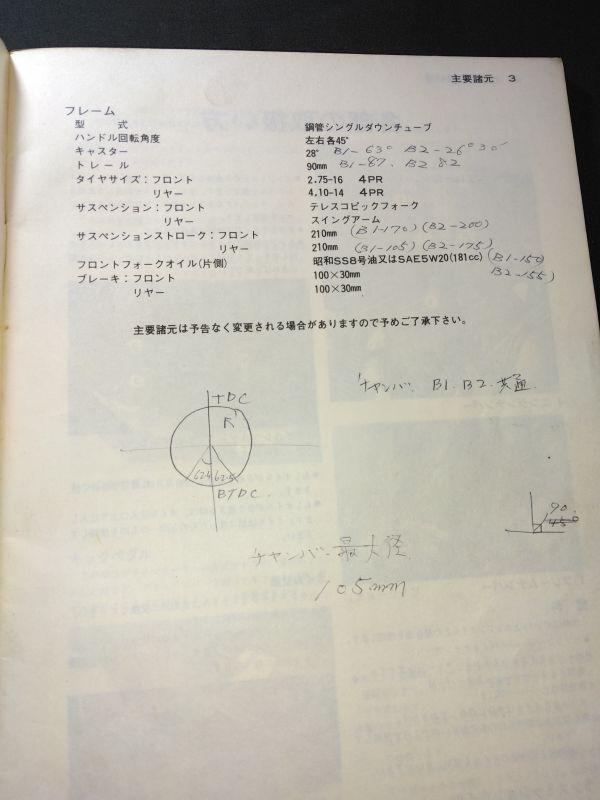 主要諸元 3
フレーム
型 式 鋼管シングルダウンチューブ
ハンドル回転角度 左右各45°
キャスター 28° B1-63° B2-26°30′
トレール 90mm B1-87. B2 82
タイヤサイズ:フロント 2.75-16 4PR
リヤー 4.10-14 4PR
サスペンション:フロント テレスコピックフォーク
リヤー スイングアーム
サスペンションストローク:フロント 210mm (B1-170) (B2-200)
リヤー 210mm (B1-105) (B2-175)
フロントフォークオイル(片側) 昭和SS8号油又はSAE5W20(181cc) (B1-150
ブレーキ:フロント 100×30mm B2-155)
リヤー 100×30mm
主要諸元は予告なく変更される場合がありますので予めご了承下さい。
チャンバ. B1. B2. 共通.
TDC
62.5
BTDC.
90.
450
チャンバー最大径.
105mm